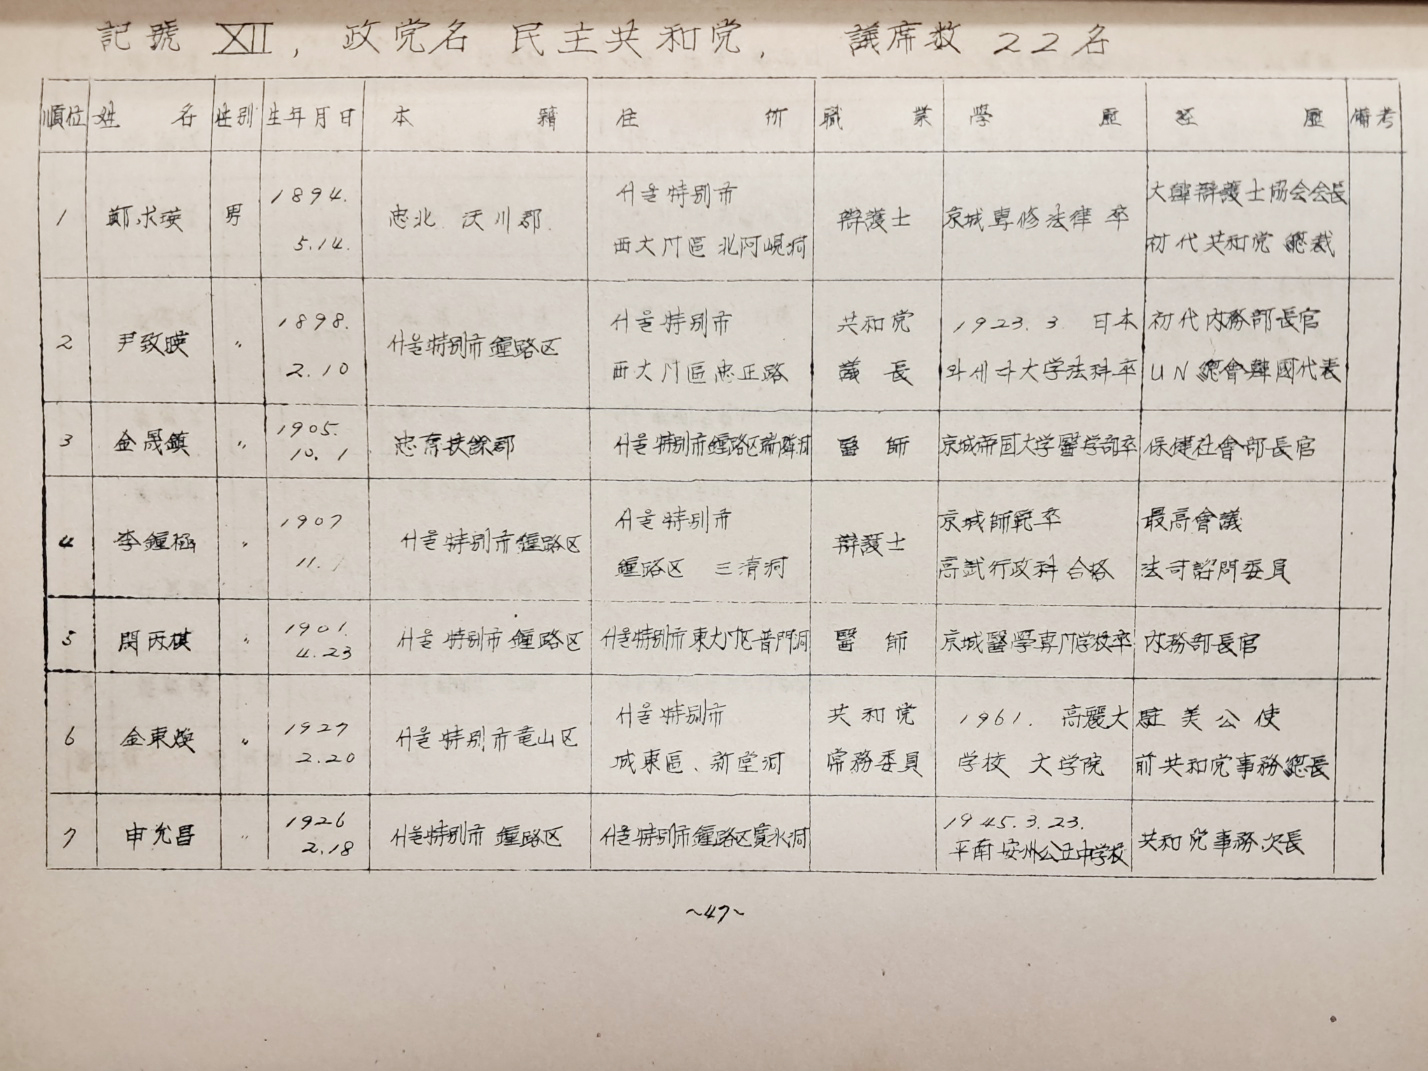 記號 XII, 政党名 民主共和党, 議席数 22名
順位 姓名 性別 生年月日 本籍 住所 職業 學歷 経歷 備考
1 鄭求瑛 男 1894. 5.14. 忠北 沃川郡 서울特別市 西大门區 北阿峴洞 辯護士 京城専修法律 卒 大韓辯護士協会会長 初代共和党 總裁
2 尹致暎 〃 1898. 2.10 서울特別市鍾路区 서울特別市 西大门區忠正路 共和党 議長 1923. 3. 日本 와세다大学法科卒 初代内務部長官 UN總會韓國代表
3 金晟鎮 〃 1905. 10. 1 忠南扶餘郡 서울特別市鍾路区 醫師 京城帝国大学醫学部卒 保健社會部長官
4 李鍾極 〃 1907 11. 서울特別市鍾路区 서울特別市 鍾路区 三清洞 辯護士 京城師範卒 高試行政科合格 最高會議 法司諮問委員
5 閔丙祺 〃 1901. 4.23 서울特別市 鍾路区 서울特別市東大门区普門洞 醫師 京城醫學専门学校卒 内務部長官
6 金東煥 〃 1927 2.20 서울特別市竜山区 서울特別市 城東區、新堂洞 共和党 常務委員 1961. 高麗大 学校 大学院 駐美公使 前共和党事務總長
7 申允昌 〃 1926 2.18 서울特別市 鍾路区 서울特別市鍾路区 1945.3.23. 平南安州公立中学校 共和党事務次長
~47~